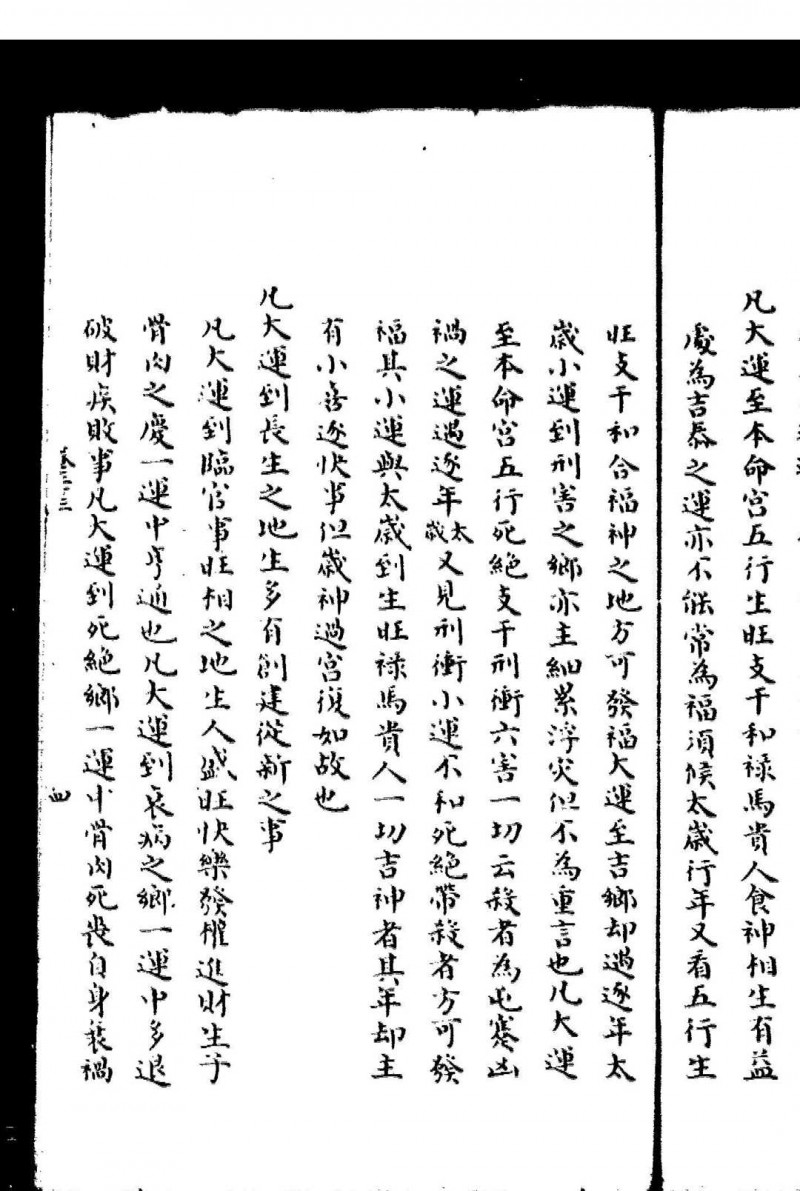 凡大運至本命宮五行生旺支干和祿馬貴人食神相生有益
處為吉恭之運亦不能常為福須候太歲行年又看五行生
旺支干和合福神之地方可發福大運至吉鄉却遇逐年太
歲小運到刑害之鄉亦主細累浮灾但不為重言也凡大運
至本命宮五行死絕支干刑衝六害一切云殺者為屯蹇凶
禍之運遇逐年太歲又見刑衝小運不和死絕帶殺者方可發
福其小運與太歲到生旺祿馬貴人一切吉神者其年却主
有小喜逐快事但歲神過宮復如故也
凡大運到長生之地生多有創建從新之事
凡大運到臨官事旺相之地生人盛旺快樂發權進財生子
骨肉之慶一運中亨通也凡大運到衰病之鄉一運中多退
破財疾敗事凡大運到死絕鄉一運中骨肉死喪自身衰禍
四